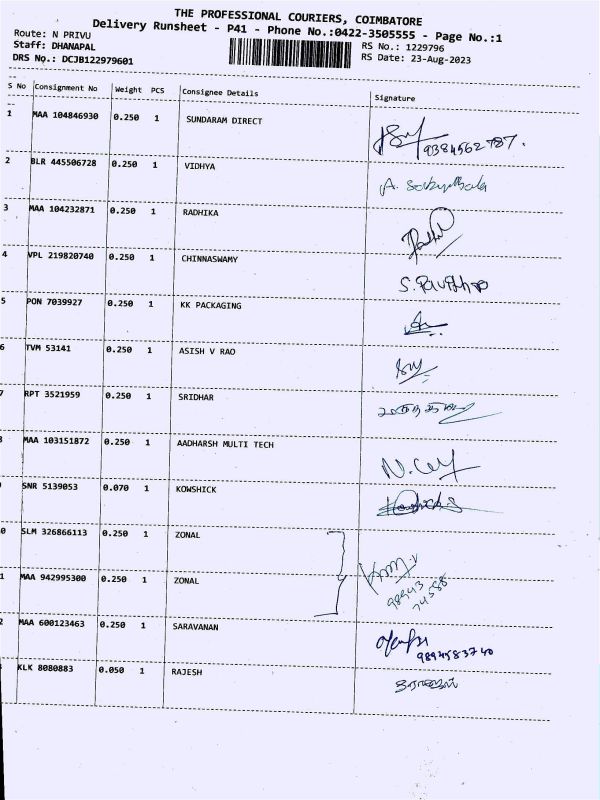 THE PROFESSIONAL COURIERS, COIMBATORE
Delivery Runsheet - P41 - Phone No.:0422-3505555 - Page No.:1
Route: N PRIVU
RS No.: 1229796
Staff: DHANAPAL
RS Date: 23-Aug-2023
DRS No.: DCJB122979601
S No Consignment No Weight PCS Consignee Details Signature
1 MAA 104846930 0.250 1 SUNDARAM DIRECT
9384562787.
2 BLR 445506728 0.250 1 VIDHYA
3 MAA 104232871 0.250 1 RADHIKA
4 VPL 219820740 0.250 1 CHINNASWAMY
5 PON 7039927 0.250 1 KK PACKAGING
6 TVM 53141 0.250 1 ASISH V RAO
7 RPT 3521959 0.250 1 SRIDHAR
MAA 103151872 0.250 1 AADHARSH MULTI TECH
SNR 5139053 0.070 1 KOWSHICK
0 SLM 326866113 0.250 1 ZONAL
1 MAA 942995300 0.250 1 ZONAL
98943
74588
2 MAA 600123463 0.250 1 SARAVANAN
9894583740
KLK 8080883 0.050 1 RAJESH